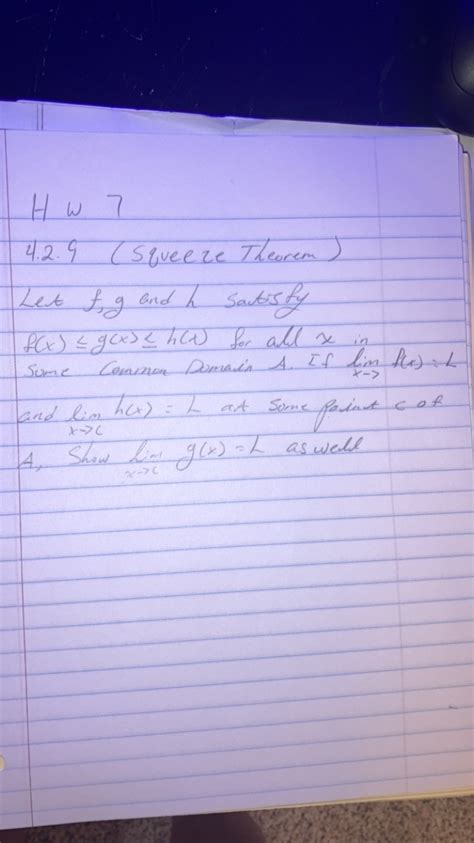 H W 7
4.2.9 (Squeeze Theorem)
Let f, g and h satisfy
f(x) ≤ g(x) ≤ h(x) for all x in
some Common Domain A. If lim x→ f(x) = L
and lim x→c h(x) = L at some point c of
A, Show lim x→c g(x) = L as well